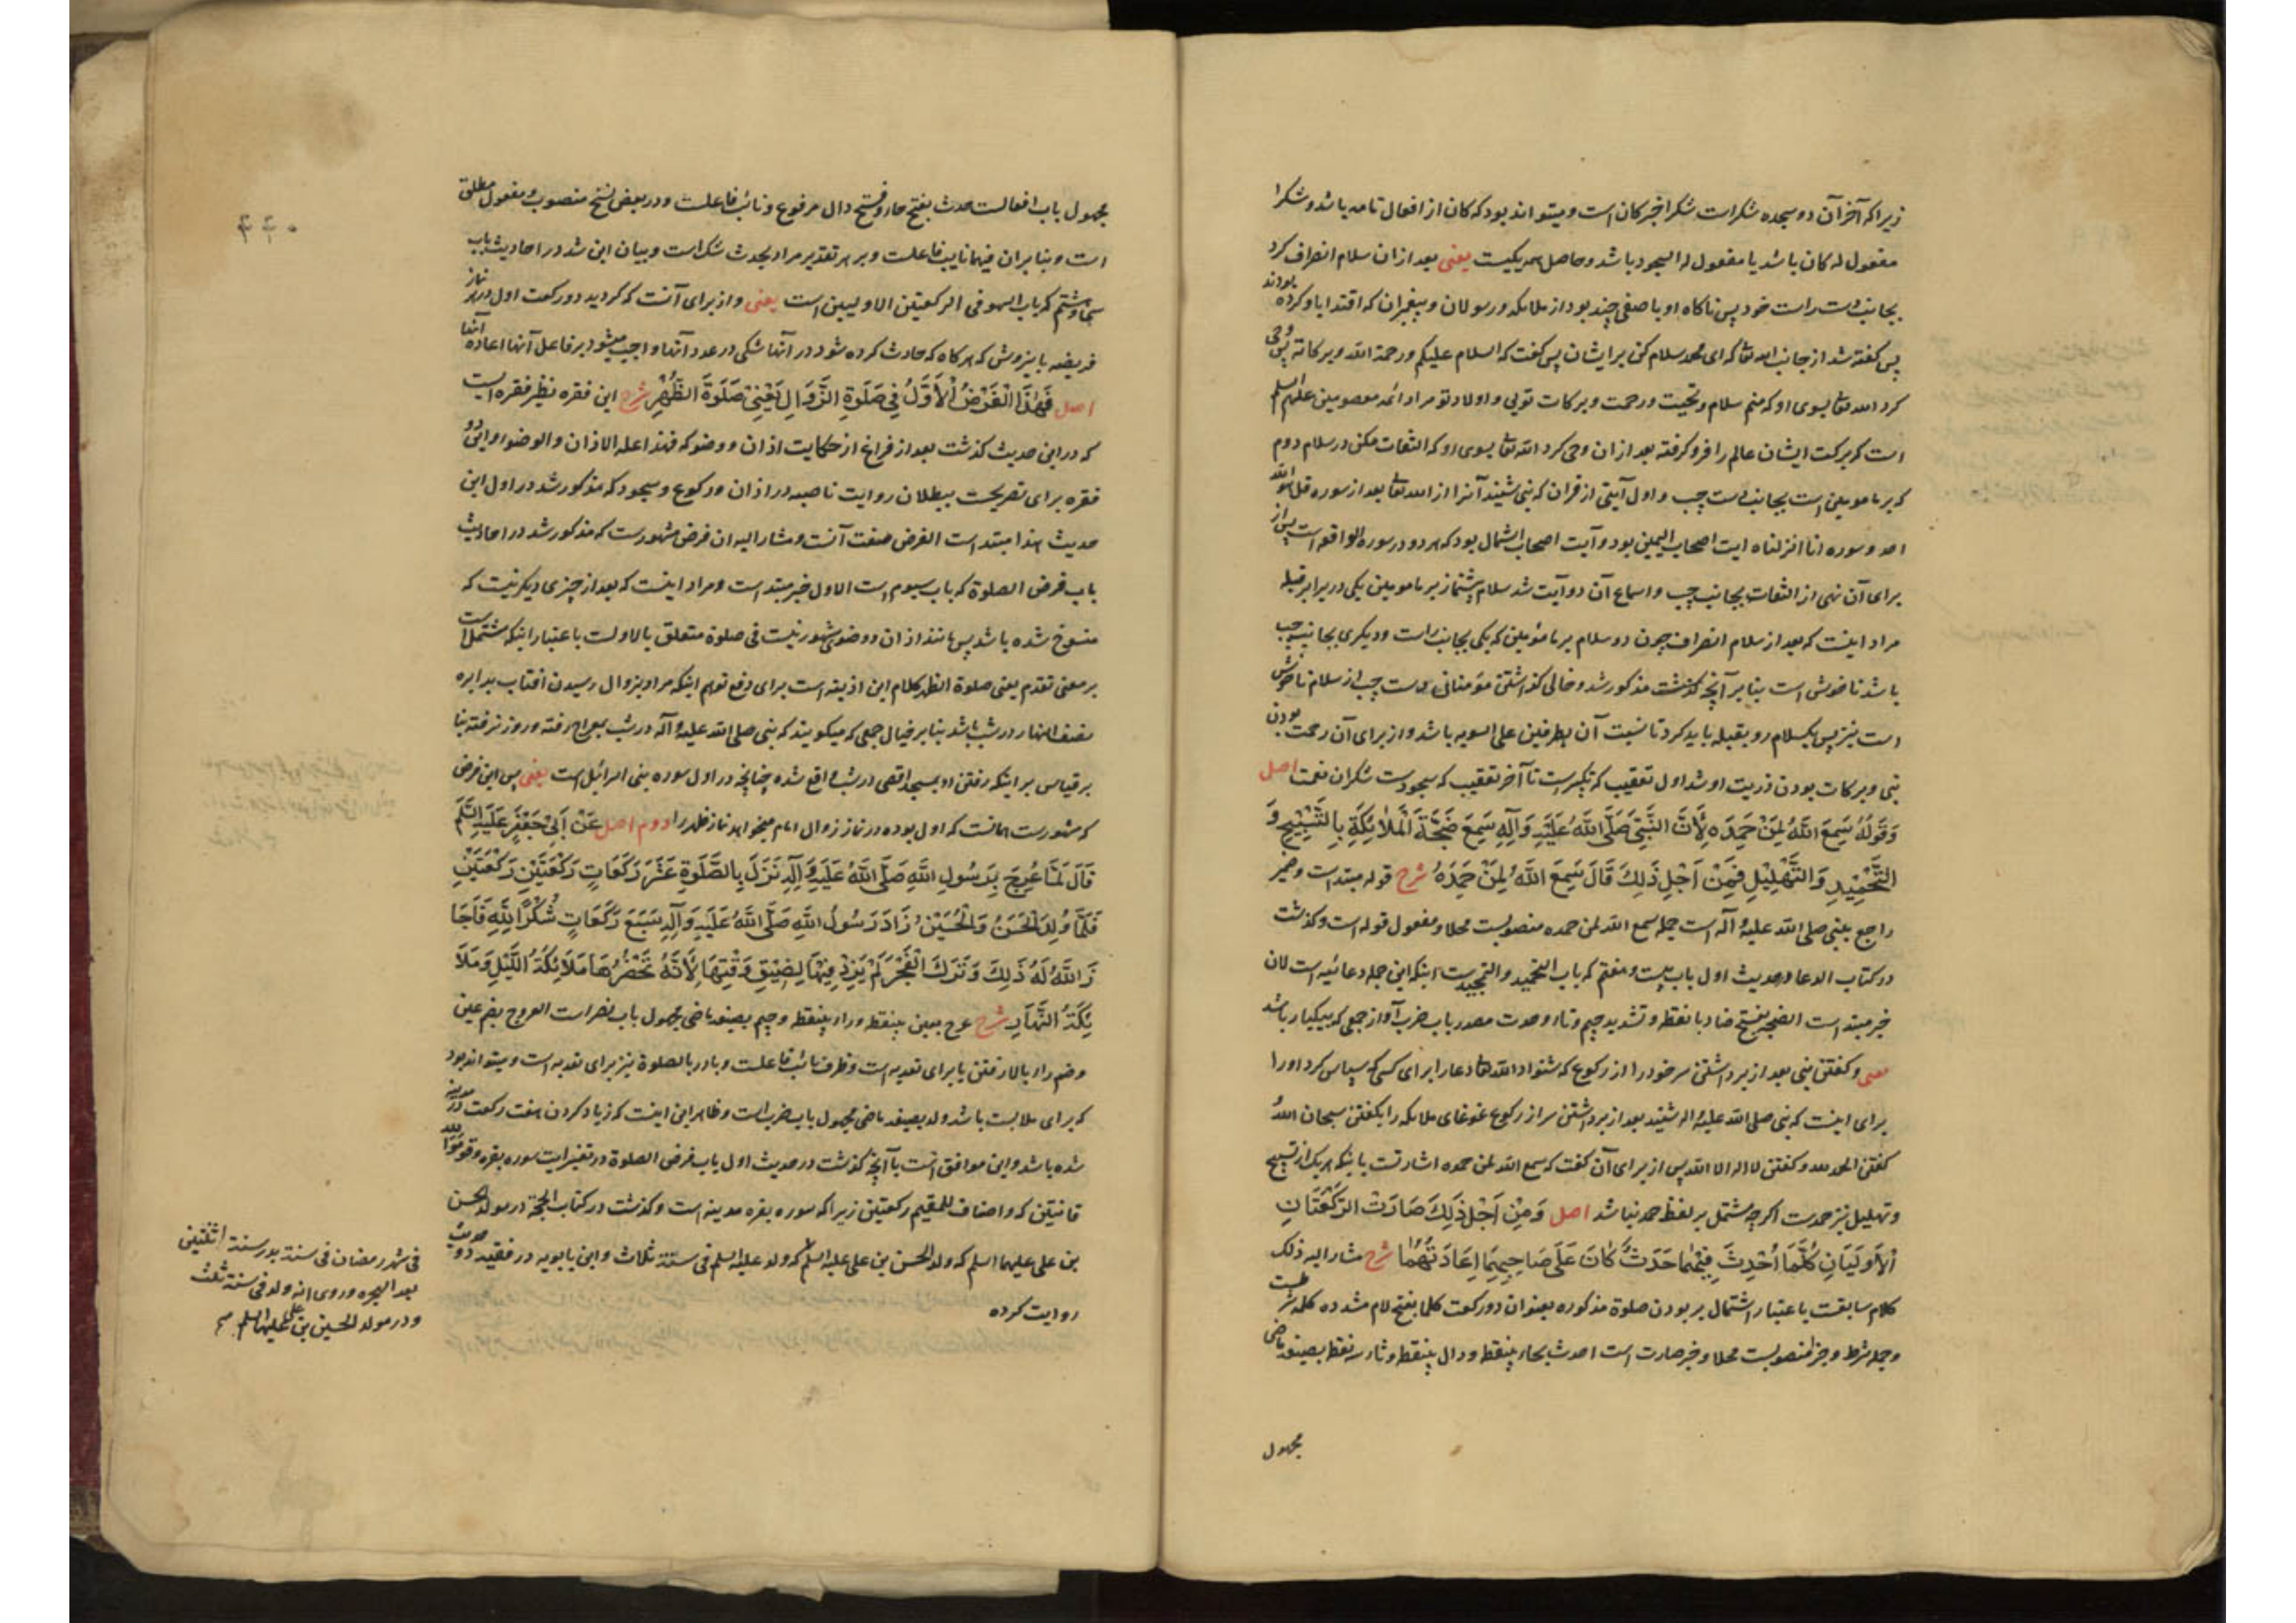 زیرا که آخر آن دو سجده شکر است شکرا خبر کان است و میتواند بود که کان از افعال تامه باشد و شکرا
مفعول له کان باشد یا مفعول له السجود باشد و حاصل همه یکیست یعنی بعد از ان سلام انصراف کرد
بجانب دست راست خود پس ناکاه او با صفی چند بود از ملائکه و رسولان و پیغمبران که اقتدا باو کرده بودند
پس کفته شد از جانب الله تعا که ای محمد سلام کن بر ایشان پس کفت که السلام علیکم و رحمة الله و برکاته پس وحی
کرد الله تعا بسوی او که منم سلام و تحیت و رحمت و برکات تویی و اولاد تو مراد ائمه معصومین علیهم السلم
است که برکت ایشان عالم را فرو کرفته بعد از ان وحی کرد الله تعا بسوی او که التفات مکن در سلام دوم
که بر مامومین است بجانب دست چپ و اول آیتی از قران که نبی شنید آنرا از الله تعا بعد از سوره قل هو الله
احد و سوره انا انزلناه ایت اصحاب الیمین بود و آیت اصحاب الشمال بود که هر دو در سوره الواقعه است پس از
برای آن نهی از التفات بجانب چپ و اسماع آن دو آیت شد سلام پیشنماز بر مامومین یکی در برابر قبله
مراد اینست که بعد از سلام انصراف چون دو سلام بر مامومین که یکی بجانب راست و دیکری بجانب چپ
باشد ناخوش است بنابر آنچه کذشت مذکور شد و خالی کذاشتن مؤمنان دست چپ از سلام ناخوش
است نیز پس یکسلام رو بقبله باید کرد تا نسبت آن بطرفین علی السویه باشد و از برای آن رحمت بودن
نبی و برکات بودن ذریت او شد اول تعقیب که تکبیرست تا آخر تعقیب که سجودست شکران نعمت اصل
وَقَوْلُهُ سَمِعَ اللَّهُ لِمَنْ حَمِدَهُ لِأَنَّ النَّبِيَّ صَلَّى اللَّهُ عَلَيْهِ وَآلِهِ سَمِعَ ضَجَّةَ الْمَلَائِكَةِ بِالتَّسْبِيحِ وَ
التَّحْمِيدِ وَالتَّهْلِيلِ فَمِنْ أَجْلِ ذَلِكَ قَالَ سَمِعَ اللَّهُ لِمَنْ حَمِدَهُ شرح قوله مبتداست و ضمیر
راجع بنبی صلی الله علیه و آله است جمله سمع الله لمن حمده منصوبست محلا و مفعول قوله است و کذشت
در کتاب الدعا در حدیث اول باب بیست و هفتم که باب التحمید و التمجیدست اینکه این جمله دعائیه است لان
خبر مبتد است الضجه بفتح ضاد با نقطه و تشدید جیم و تاء وحدت مصدر باب ضرب آواز جمعی که بیکبار باشد
یعنی و کفتن نبی بعد از برداشتن سر خود را از رکوع که شنواد الله تعا دعا را برای کسی که سپاس کرد او را
برای اینست که نبی صلی الله علیه و اله شنید بعد از برداشتن سر از رکوع غوغای ملائکه را بکفتن سبحان الله
کفتن الحمد لله و کفتن لا اله الا الله پس از برای آن کفت که سمع الله لمن حمده اشارتست باینکه هر یک از تسبیح
و تهلیل نیز حمدست اکرچه مشتمل بر لفظ حمد نباشد اصل وَمِنْ أَجْلِ ذَلِكَ صَارَتْ الرَّكْعَتَانِ
الْأُولَيَانِ كُلَّمَا أُحْدِثَ فِيهِمَا حَدَثٌ كَانَ عَلَى صَاحِبِهِمَا إِعَادَتُهُمَا شرح مشار الیه ذلک
کلام سابقست باعتبار اشتمال بر بودن صلوة مذکوره بعنوان دو رکعت کلما بفتح لام مشدده کلمه شرطست
و جمله شرط و جزا منصوبست محلا و خبر صارت است احدث بحاء بینقطه و دال بینقطه و ثاء سه نقطه بصیغه ماضی
مجهول
۴۴۰
مجهول باب افعالست حدث بفتح حا و فتح دال مرفوع و نائب فاعلست و در بعض نسخ منصوب و مفعول مطلق
است و بنابر ان فیهما نایب فاعلست و بر هر تقدیر مراد بحدث شک است و بیان این شد در احادیث باب
سی و هشتم که باب السهو فی الرکعتین الاولیین است یعنی و از برای آنست که کردید دو رکعت اول در هر نماز
فریضه باینروش که هر کاه که حادث کرده شود در آنها شکی در عدد آنها واجب میشود بر فاعل آنها اعاده آنها
اصل فَهَذَا الْفَرْضُ الْأَوَّلُ فِي صَلَوةِ الزَّوَالِ يَعْنِي صَلَوةَ الظُّهْرِ شرح این فقره نظیر فقره ایست
که در این حدیث کذشت بعد از فراغ از حکایت اذان و وضو که فهذا علة الاذان و الوضوء و این دو
فقره برای تصریحست ببطلان روایت ناصبه در اذان و رکوع و سجود که مذکور شد در اول این
حدیث هذا مبتد است الفرض صفت آنست و مشار الیه ان فرض مشهورست که مذکور شد در احادیث
باب فرض الصلوة که باب سیوم است الاول خبر مبتد است و مراد اینست که بعد از چیزی دیکر نیست که
منسوخ شده باشد پس مانند اذان و وضوی مشهور نیست فی صلوة متعلق بالاولست باعتبار اینکه مشتملست
بر معنی تقدم یعنی صلوة الظهر کلام ابن اذینه است برای دفع توهم اینکه مراد بزوال رسیدن افتاب بدایره
نصف النهار در شب باشد بنابر خیال جمعی که میکویند که نبی صلی الله علیه و آله در شب بمعراج رفته و روز نرفته بنا
بر قیاس بر اینکه رفتن او بمسجد اقصی در شب واقع شده چنانچه در اول سوره بنی اسرائیل است یعنی پس این فرض
که مشهورست همانست که اول بوده در نماز زوال امام میخواهد نماز ظهر را دوم اصل عَنْ أَبِي جَعْفَرٍ عَلَيْهِ السَّلَمُ
قَالَ لَمَّا عُرِجَ بِرَسُولِ اللَّهِ صَلَّى اللَّهُ عَلَيْهِ وَآلِهِ نَزَلَ بِالصَّلَوةِ عَشْرَ رَكَعَاتٍ رَكْعَتَيْنِ رَكْعَتَيْنِ
فَلَمَّا وُلِدَ الْحَسَنُ وَالْحُسَيْنُ زَادَ رَسُولُ اللَّهِ صَلَّى اللَّهُ عَلَيْهِ وَآلِهِ سَبْعَ رَكَعَاتٍ شُكْرًا لِلَّهِ فَأَجَا
زَ اللَّهُ لَهُ ذَلِكَ وَتَرَكَ الْفَجْرَ لَمْ يَزِدْ فِيهَا لِضِيقِ وَقْتِهَا لِأَنَّهُ تَحْضُرُهَا مَلَائِكَةُ اللَّيْلِ وَمَلَا
ئِكَةُ النَّهَارِ شرح عرج بعین بینقطه و راء بینقطه و جیم بصیغه ماضی مجهول باب نصر است العروج بضم عین
و ضم راء بالا رفتن با برای تعدیه است و ظرف نائب فاعلست و با در بالصلوة نیز برای تعدیه است و میتواند بود
که برای ملابست باشد ولد بصیغه ماضی مجهول باب ضرب است و ظاهر این اینست که زیاد کردن هفت رکعت در مدینه
شده باشد و این موافق است با آنچه کذشت در حدیث اول باب فرض الصلوة در تفسیر ایت سوره بقره و قوموا لله
قانتین که و اضاف للمقیم رکعتین زیرا که سوره بقره مدینه است و کذشت در کتاب الحجة در مولد الحسن
بن علی علیهما السلم که ولد الحسن بن علی علیه السلم که ولد علیه السلم فی سنة ثلاث و ابن بابویه در فقیه دو حدیث
روایت کرده
فی شهر رمضان فی سنة بدر سنة اثنتین
بعد الهجره و روی انه ولد فی سنة ثلث
و در مولد الحسین بن علی علیهما السلم